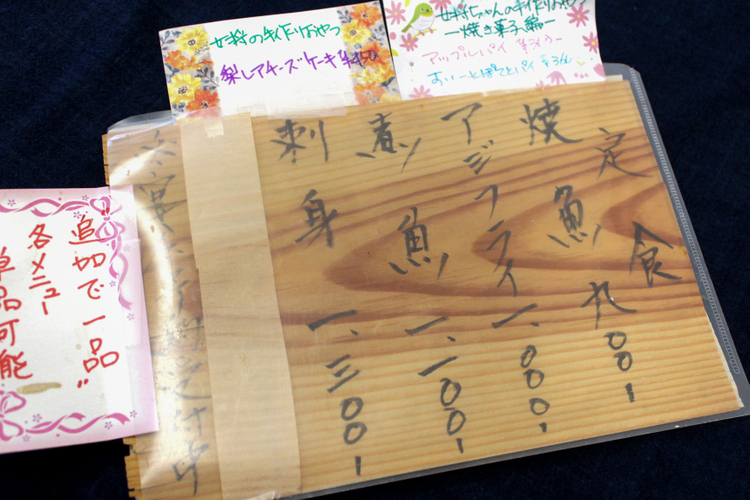 女将の手作りおやつ
梨レアチーズケーキ
女将ちゃんの手作りおやつ
ー焼き菓子編ー
アップルパイ
定食
焼魚 九〇〇-
アジフライ 一、〇〇〇-
煮魚 一、一〇〇-
刺身 一、三〇〇-
追加で一品"
各メニュー
単品可能